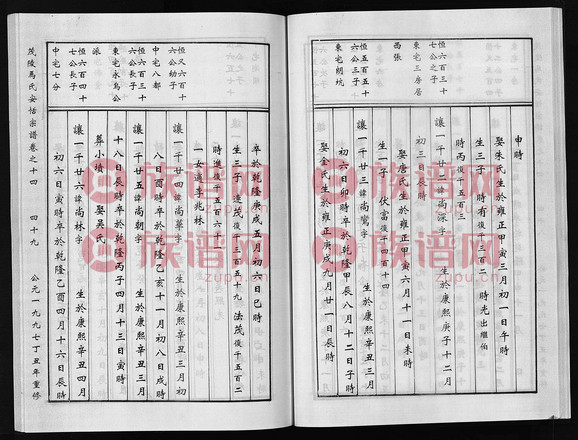 東宅三房居
西張
恒五百五十
六公三子
東宅朗坑
申時
娶朱氏生於雍正甲寅三月初一日午時
生三子 時宥 復千三百二 時光出繼伯
時丙 復千五百三
讓一千廿二諱尚深字 生於康熙庚子十二月
初三日辰時
娶唐氏生於雍正甲寅六月十一日未時
生一子 伏富 復千四百十
讓一千廿三諱尚鸞字 生於康熙辛丑三月
初六日卯時卒於乾隆甲辰八月十二日子時
娶金氏生於雍正庚戌九月廿一日辰時
恒又六百十
六公幼子
中宅八都
恒六百三十
六公長子
東宅永為公
派
恒六百四十
七公長子
中宅七分
卒於乾隆庚戌五月初六日巳時
生三子 連茂 復千三百五十九 法茂 復千五百二
時進 復千五百六十一
一女適李兆林
讓一千廿四諱尚華字 生於康熙辛丑三月初
八日酉時卒於乾隆乙亥十一月初八日戌時
讓一千廿五諱尚朝字 生於康熙辛丑三月
十八日辰時卒於乾隆丙子四月十三日寅時
葬小墳 娶吳氏
讓一千廿六諱尚林字 生於康熙辛丑四月
初六日寅時卒於乾隆乙酉四月十六日辰時
茂陵馬氏安恬宗譜卷之十四 四十九 公元一九九七丁丑年重修
族谱网
zupu.cn